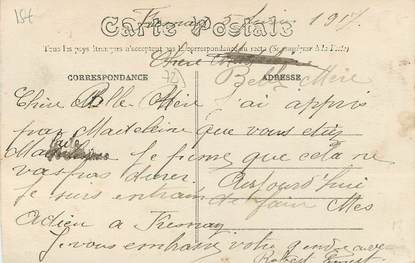 Fresnay 3 Juin 1917
Carte Postale
Tous les pays étrangers n'acceptent pas la correspondance au recto (Se renseigner à la Poste)
Chère
Belle Mère
CORRESPONDANCE
ADRESSE
72
Chère Belle-Mère j'ai appris
par Madeleine que vous étiez
Malade Je pense que cela ne
vas pas durer. Aujourd'hui
Je suis entrain de fair Mes
Adieu a Fresnay
Je vous embrasse votre gendre
Robert